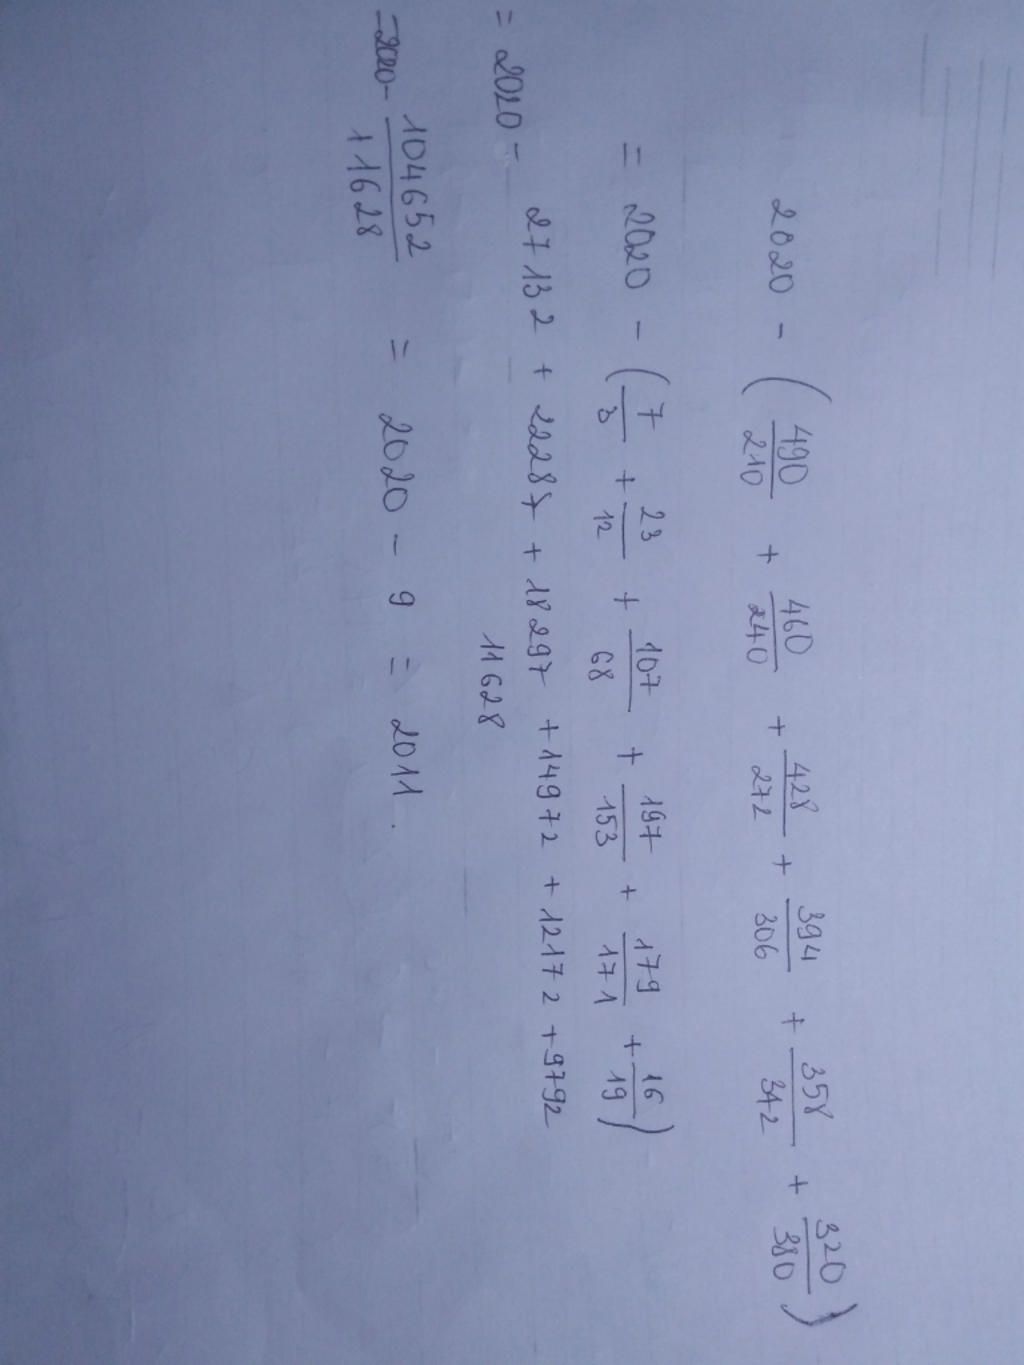 2020 - ( 490/210 + 460/240 + 428/272 + 394/306 + 358/342 + 320/380 )
= 2020 - ( 7/3 + 23/12 + 107/68 + 197/153 + 179/171 + 16/19 )
= 2020 - 27132 + 22287 + 18297 + 14972 + 12172 + 9792 / 11628
= 2020 - 104652/11628 = 2020 - 9 = 2011.